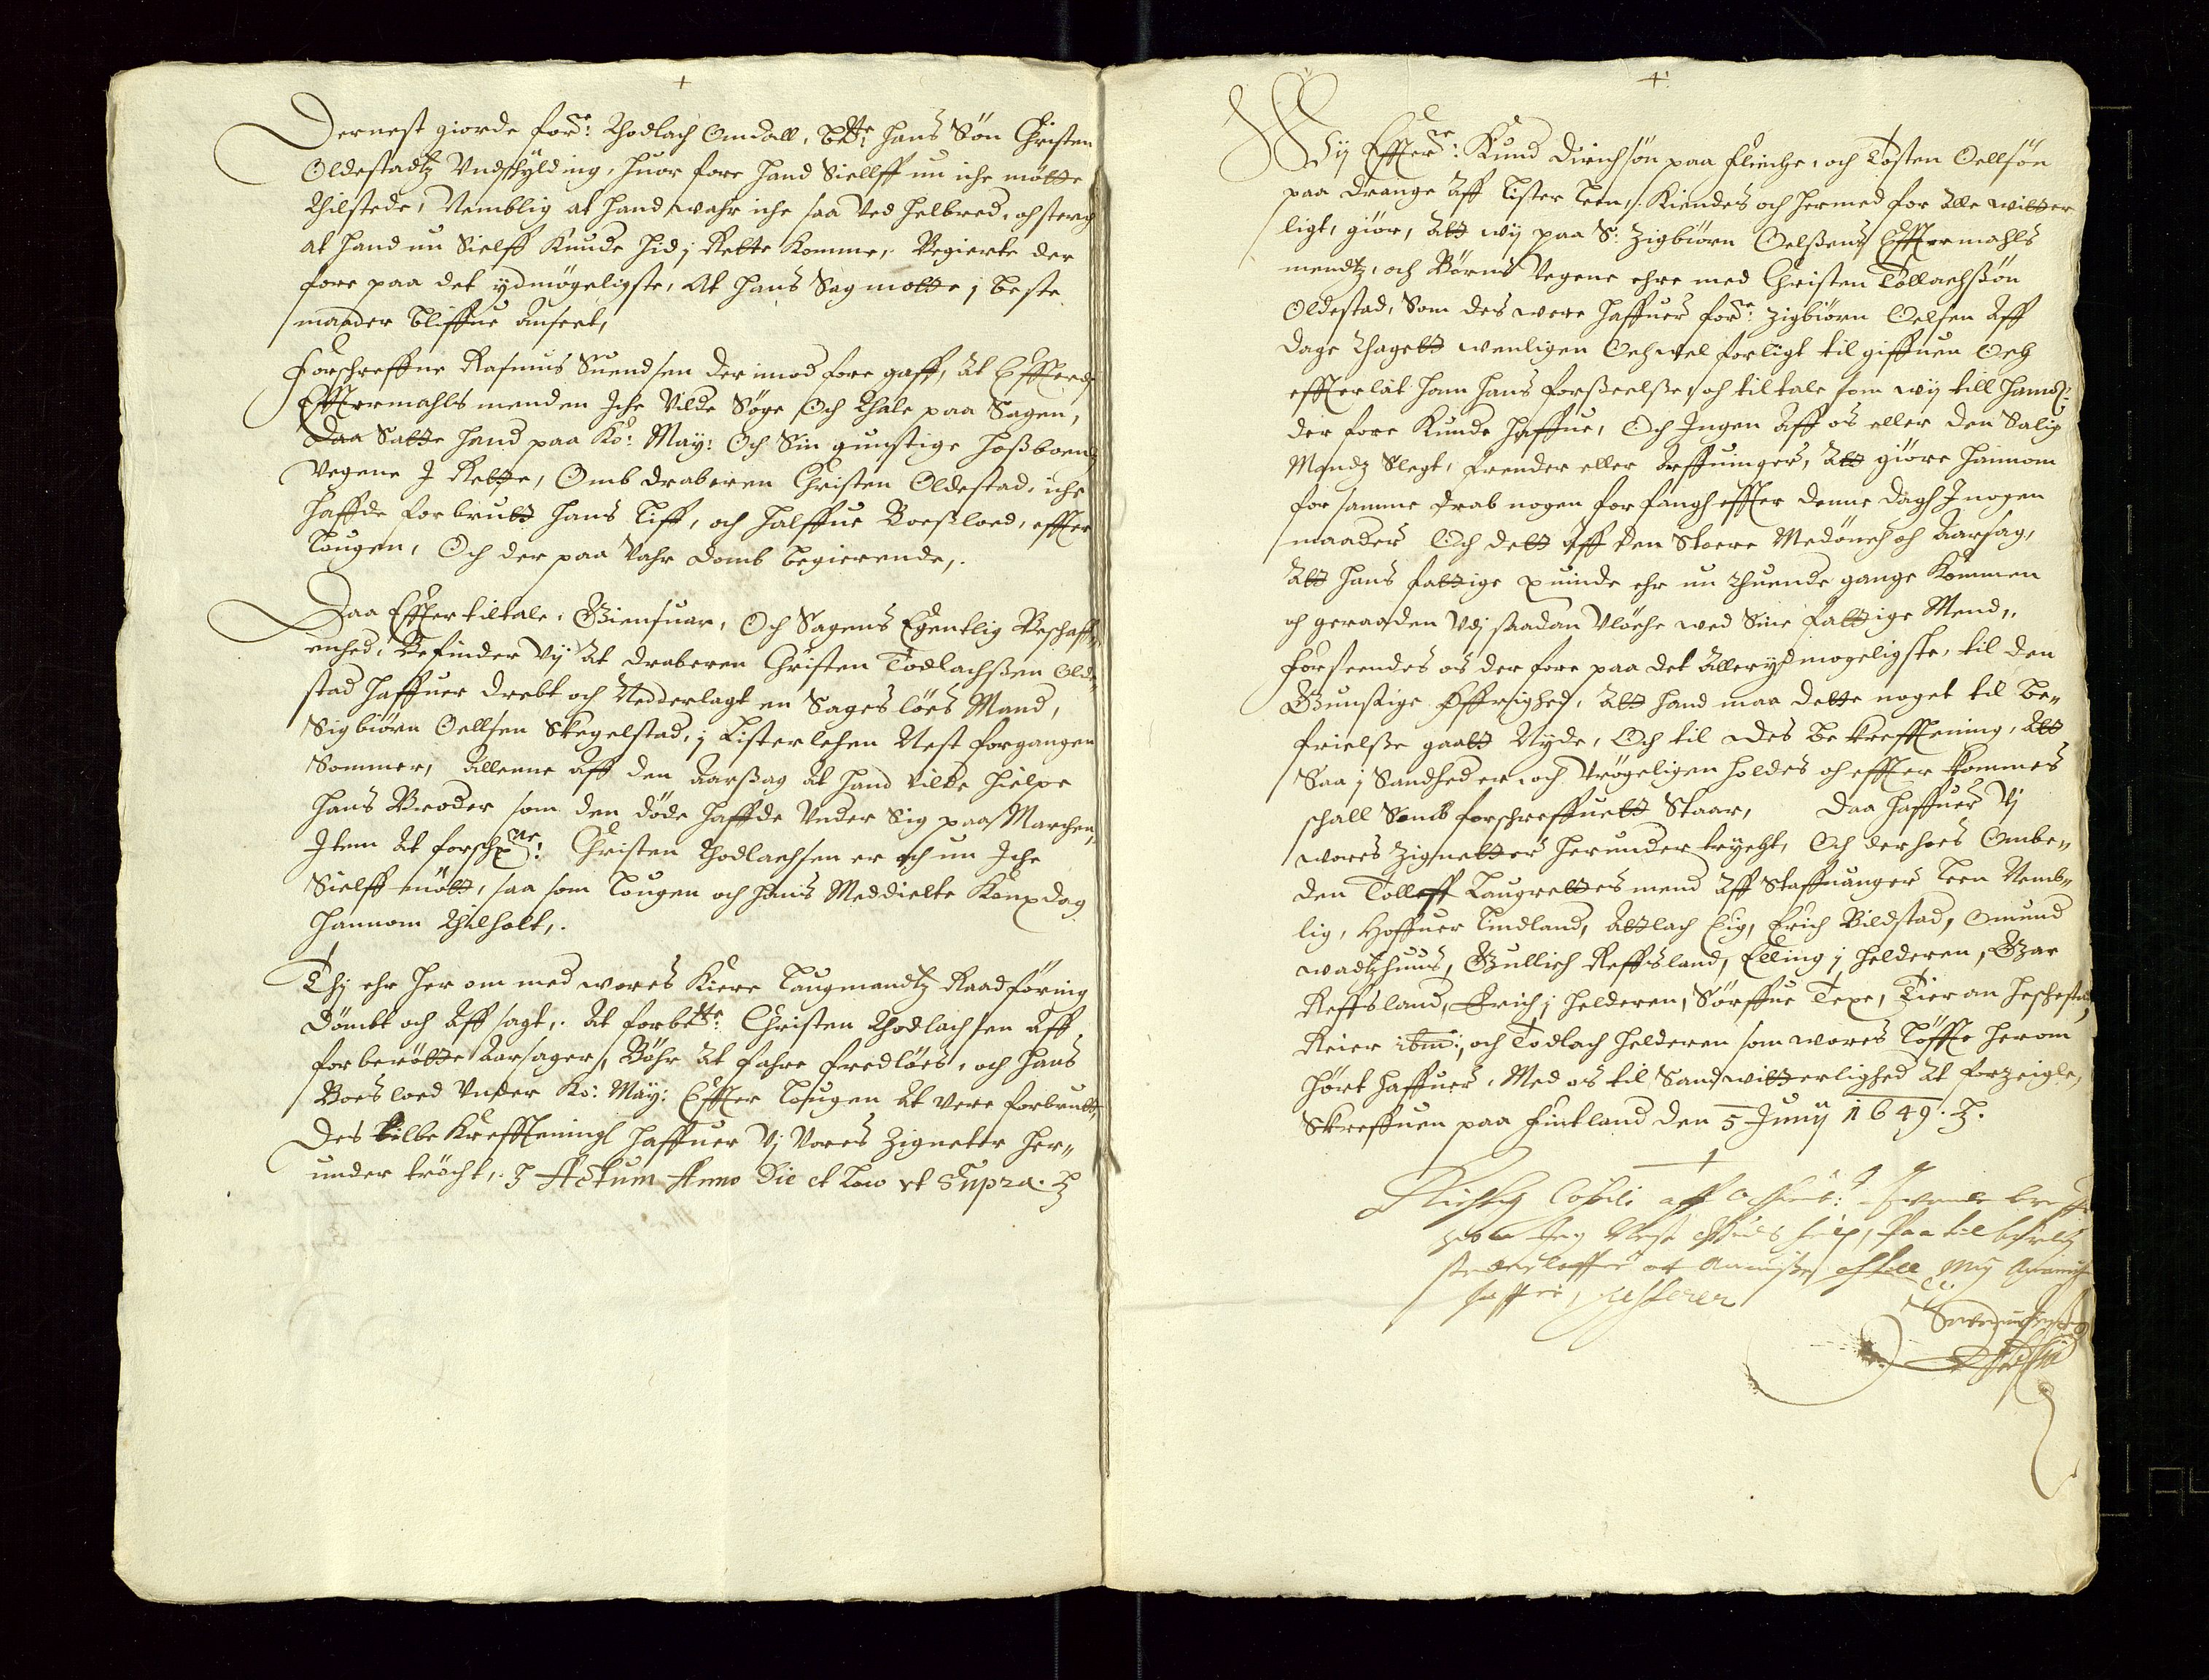 Dernest giorde forne: Thodlach Omdall, bette: hans Søn Christen
Oldestadtz Undskylding, huor fore hand Siellff nu iche møtte
Thilstede, Nemblig at hand wahr iche saa Ved helbred, oh sterch
at hand nu Sielff Kunde hid j Rette Komme, Begierte der
fore paa det ydmøgeligste, At hans Sag motte j beste
maader bliffue anseet,
Forschreffne Rasmus Suendsen der imod fore gaff, at Effterdj
Efftermahls menden Iche Vilde Søge Och thale paa Sagen,
Daa Satte hand paa Ko: May: Och Sin gunstige hoßboendz
Vegene J Rette, Omb draberen Christen Oldestad, iche
haffde forbrutt hans Liff, och halffue Boeßloed, effter
Lougen, Och der paa Vahr domb begierende,
Daa Effter tiltale, Giensuar, Och Sagens Egentlig Beschaff-
enhed, Befinder Vij at draberen Christen Todlachßen Olde-
stad haffuer drebt och Nedderlagt en Sages løes Mand,
Sigbiørn Oellsen Skegelstad, j Listerlehen Nest forgangen
Sommer, allenne aff den Aarßag at hand vilde hielpe
hans Broder som den døde haffde Vnder Sig paa Marchen,
Item at forschne: Christen Thodlachsen er och nu Iche
Sielff møtt, saa som Lougen och hans Meddielte Kompdag
hannom Thilholt,
Thj ehr her om med wores Kiere Laugmandtz Raadføring
Dømbt och aff sagt, at forbette: Christen Thodlachsen aff
for berøtte Aarsager, Bøhr at fahre fredløes, och hans
Boes loed Vnder Ko: May: Effter Lougen at vere forbrutt,
Des til be Krefftening haffuer Vj Vores Zigneter her-
under trøcht, Actum Anno Die et Loco vt Supra.
Wij Effterne: Knud Dirichsøn paa Fleche, och Tosten Oellsøn
paa Drange aff Lister Leen, Kiendes och hermed for alle witter
ligt, giør, att wij paa S: Zigbiørn Oelßens Efftermahls
mendtz, och Børns Vegene ehre med Christen Tollachßøn
Oldestad, Som des were haffuer forne: Zigbiørn Oelsen aff
dage thagett wenligen Och wel forligt til giffuen Och
effterlat ham hans forßeelße, oh tiltale som wij till hamb:
der fore Kunde haffue, Och Ingen aff os eller den Salig
Mandz Slegt, frender eller Arffuinger, att giøre hannom
for samme drab nogen forfang effter denne dagh J nogen
maader Och dett aff den Stoere Medønch oh Aarsag,
att hans fattige quinde ehr nu thuende gange Kommen
oh geraaden Vdj saadan Vløche wed Sine fattige Mend,
Forseendes os der fore paa det allerydmogeligste, til den
Gunstige Øffrighed, att hand maa dette noget til be-
frielße gaatt Nyde, Och til des be krefftening, att
Saa j Sandhed er och Vrøgeligen holdes oh effter kommes
schall Somb forschreffuett Staar, Daa haffuer Vj
wores Zignetter herunder trycht, Och derhoes Ombe-
den Tolleff Laugrettes mend aff Staffuanger Leen Nemb-
lig, Hoffuer Lindland, Attlach Eig, Erich Bildstad, Omund
wadtzhuus, Gullich Reffsland, Elling j Helderen, Goar
Reffsland, Erich j Helderen, Sørffue Tepe, Tieran Heschestad
Reier ibm:, och Todlach Helderen som wores Løffte herom
hørt haffuer, Med os til Sandwitterlighed at forzeigle,
Skreffuen paa Fintland den 5 Junij 1649.